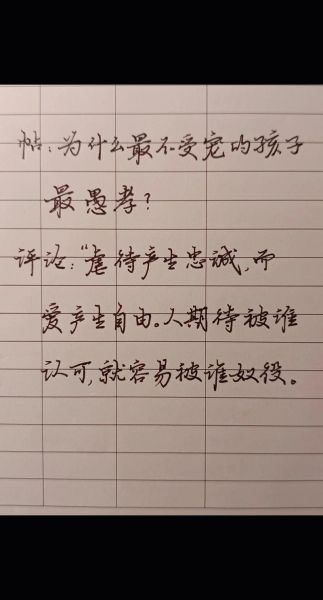 帖：为什么最不受宠的孩子
最愚孝？
评论：“虐待产生忠诚，而
爱产生自由。人期待被谁
认可，就容易被谁奴役。